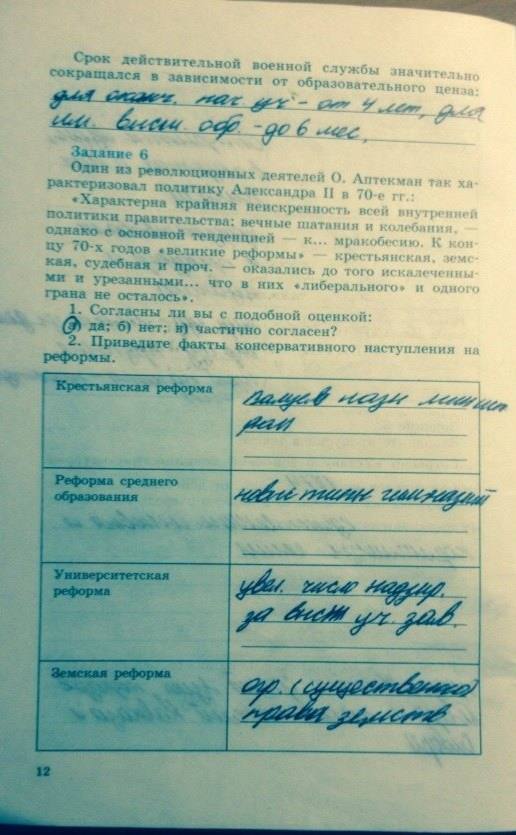 Срок действительной военной службы значительно
сокращался в зависимости от образовательного ценза:
для оконч. нач. уч - от 4 лет, для
им. высш. обр. - до 6 мес.
Задание 6
Один из революционных деятелей О. Аптекман так ха-
рактеризовал политику Александра II в 70-е гг.:
«Характерна крайняя неискренность всей внутренней
политики правительства: вечные шатания и колебания, —
однако с основной тенденцией — к... мракобесию. К кон-
цу 70-х годов «великие реформы» — крестьянская, земс-
кая, судебная и проч. — оказались до того искалеченны-
ми и урезанными... что в них «либерального» и одного
грана не осталось».
1. Согласны ли вы с подобной оценкой:
а) да; б) нет; в) частично согласен?
2. Приведите факты консервативного наступления на
реформы.
Крестьянская реформа
Валуев назн министром
Реформа среднего
образования
новые типы гимназий
Университетская
реформа
увел. число надзир.
за высш уч. зав.
Земская реформа
огр. (существенно)
права земств
12